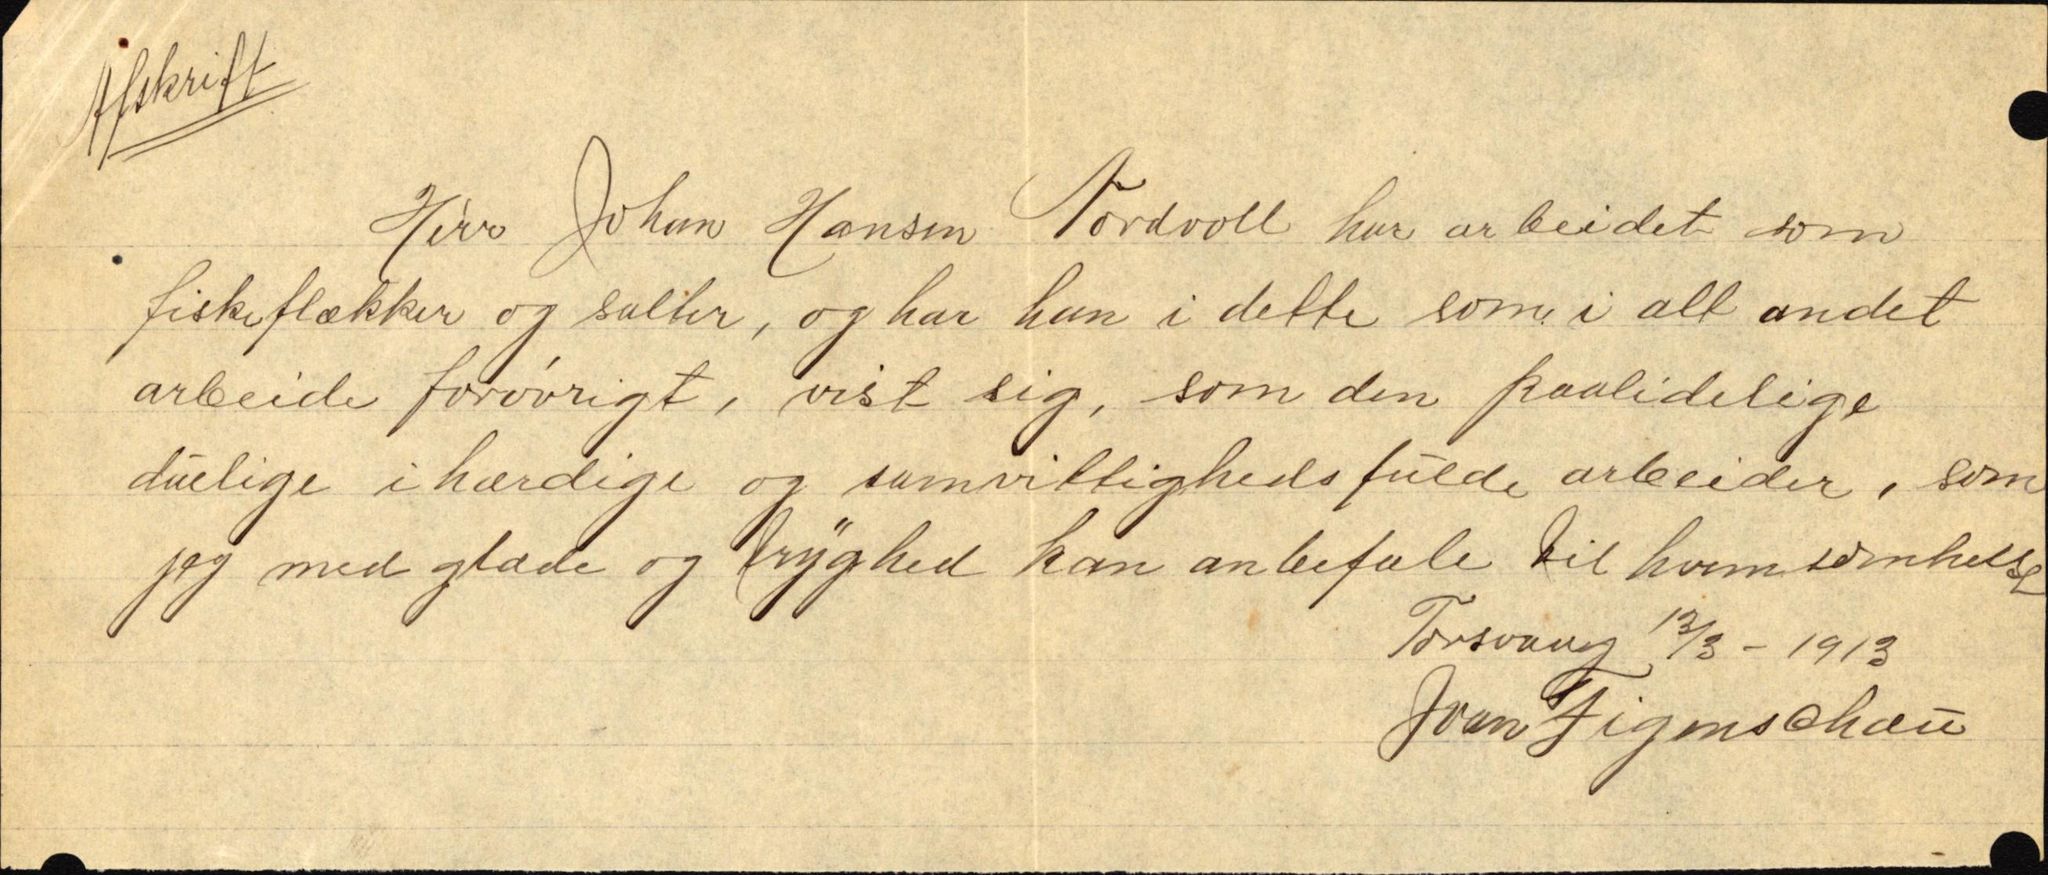 Afskrift
Herr Johan Hansen Nordvoll har arbeidet som
fiskeflækker og salter, og har han i dette som i alt andet
arbeide forøvrigt, vist sig, som den paalidelige
duelige ihærdige og samvittighedsfulde arbeider, som
jeg med glæde og tryghed kan anbefale til hvemsomhelst
Torsvaag 12/3 - 1913
Ivan Figenschau